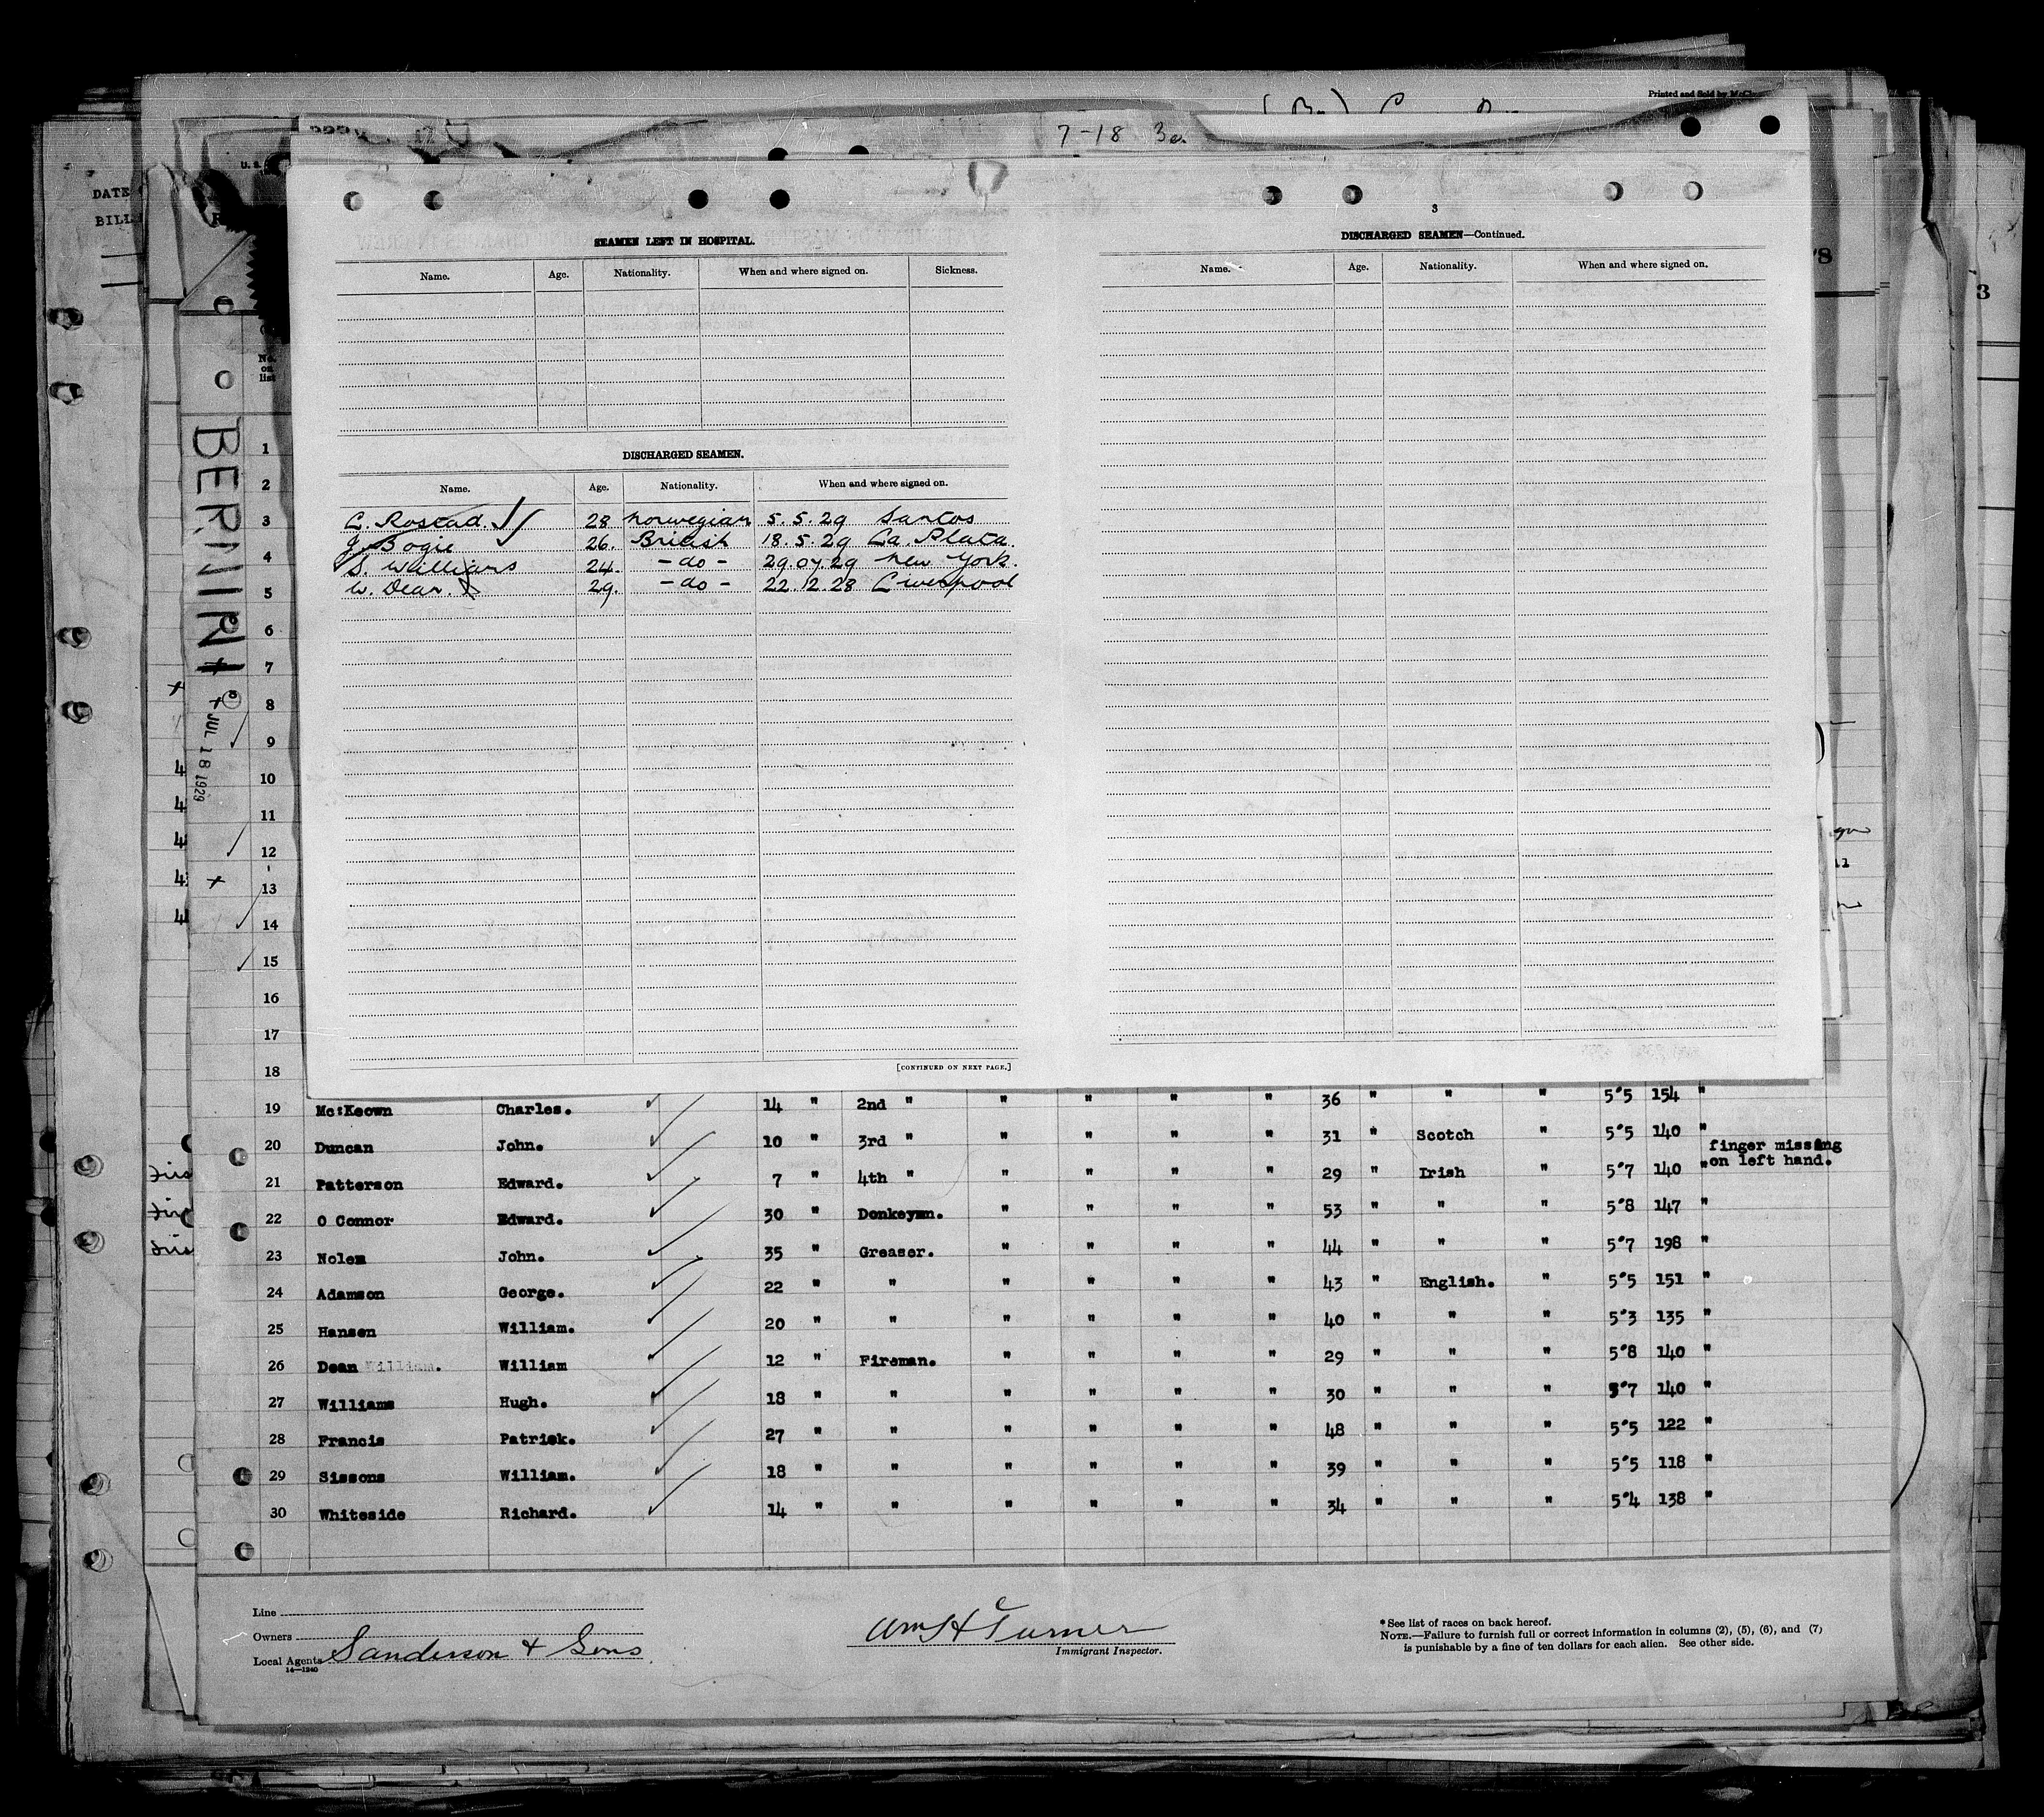 Printed and Sold by
7-18 3a.
U. S.
DATE
BILL
3
SEAMEN LEFT IN HOSPITAL.
Name. Age. Nationality. When and where signed on. Sickness.
DISCHARGED SEAMEN.
Name. Age. Nationality. When and where signed on.
C. Rostad. 28 Norwegian 5.5.29 Santos
J. Bogie 26. British 18.5.29 La Plata.
S. Williams 24. - do - 29.07.29 New York.
W. Dean. 29. - do - 22.12.28 Liverpool
[CONTINUED ON NEXT PAGE.]
DISCHARGED SEAMEN—Continued.
Name. Age. Nationality. When and where signed on.
No. on list
BERNINI
JUL 18 1929
1
2
3
4
5
6
7
8
9
10
11
12
13
14
15
16
17
18
19 Mc:Keown Charles. 14 " 2nd " " " " " 36 " " " 5'5 154 "
20 Duncan John. 10 " 3rd " " " " " 31 " Scotch " 5'5 140 "
finger missing
on left hand.
21 Patterson Edward. 7 " 4th " " " " " 29 " Irish " 5'7 140 "
22 O Connor Edward. 30 " Donkeymn. " " " " 53 " " " 5'8 147 "
23 Nolem John. 35 " Greaser. " " " " 44 " " " 5'7 198 "
24 Adamson George. 22 " " " " " " 43 " English. " 5'5 151 "
25 Hansen William. 20 " " " " " " 40 " " " 5'3 135 "
26 Dean William. William 12 " Fireman. " " " " 29 " " " 5'8 140 "
27 Williams Hugh. 18 " " " " " 30 " " " 5'7 140 "
28 Francis Patrick. 27 " " " " " " 48 " " " 5'5 122 "
29 Sissons William. 18 " " " " " " 39 " " " 5'5 118 "
30 Whiteside Richard. 14 " " " " " " 34 " " " 5'4 138 "
Line
Owners
Local Agents Sanderson & Sons.
14—1240
Wm H Turner
Immigrant Inspector.
* See list of races on back hereof.
NOTE.—Failure to furnish full or correct information in columns (2), (5), (6), and (7)
is punishable by a fine of ten dollars for each alien. See other side.